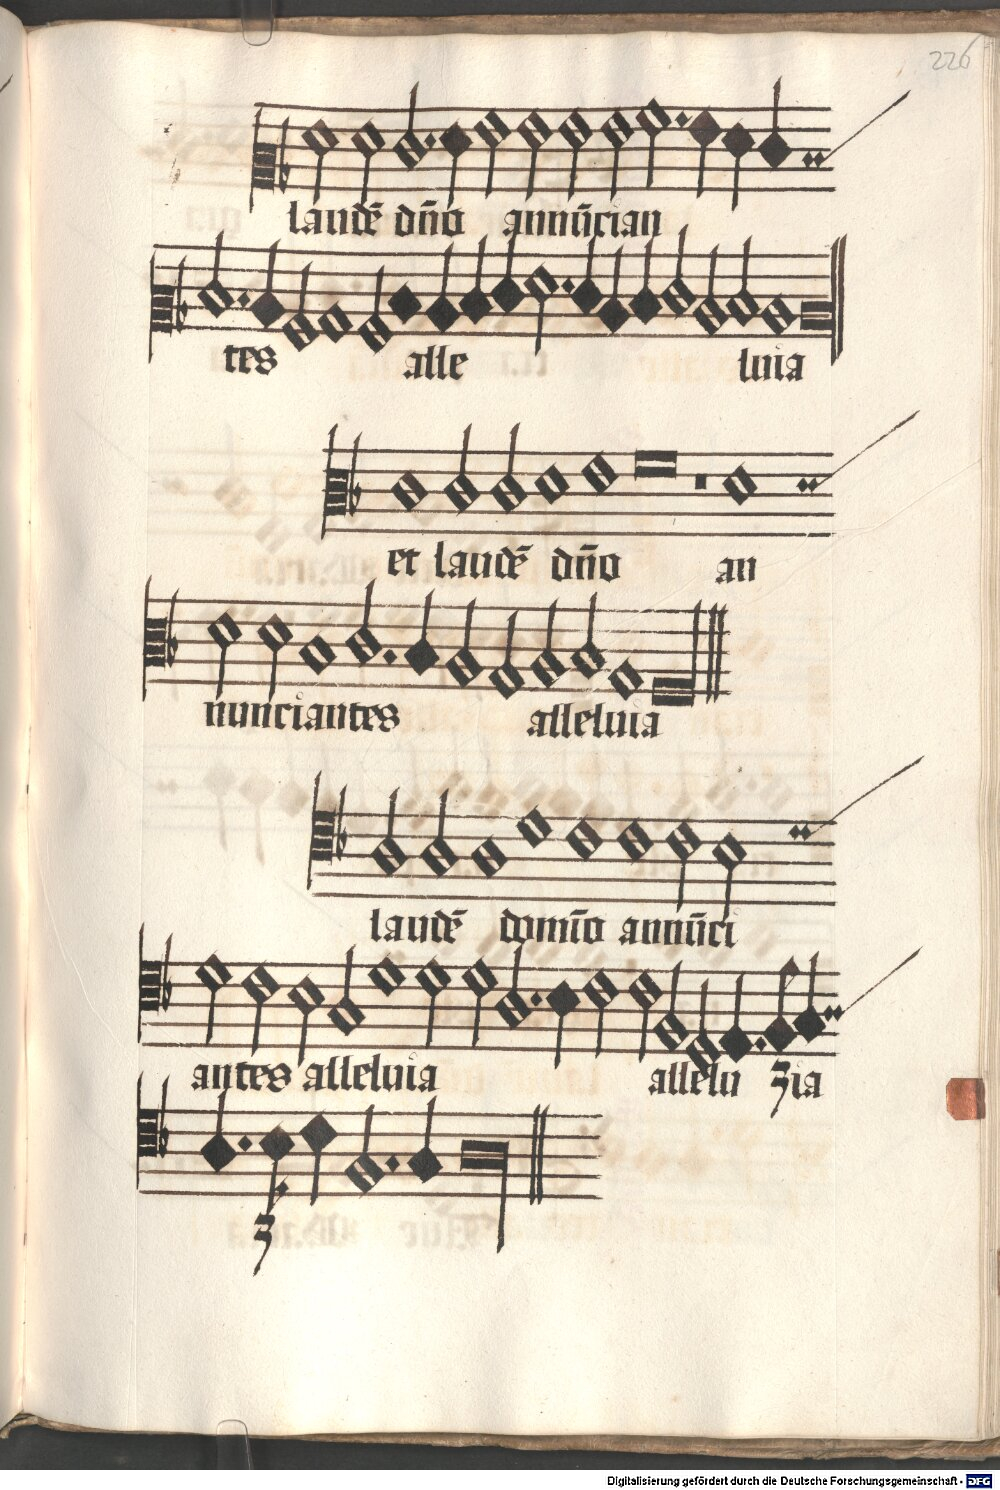 226
laudē dn̄o annūcian
tes alle luia
et laudē dn̄o an
nunciantes alleluia
laudē domīo annūci
antes alleluia allelu ia
Digitalisierung gefördert durch die Deutsche Forschungsgemeinschaft - DFG